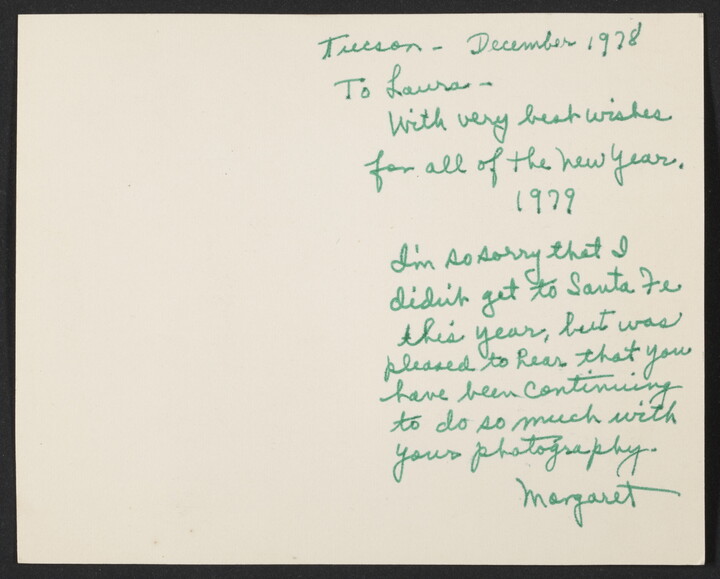 Tucson - December 1978
To Laura -
With very best wishes
for all of the New Year.
1979
I'm so sorry that I
didn't get to Santa Fe
this year, but was
pleased to hear that you
have been continuing
to do so much with
your photography.
Margaret